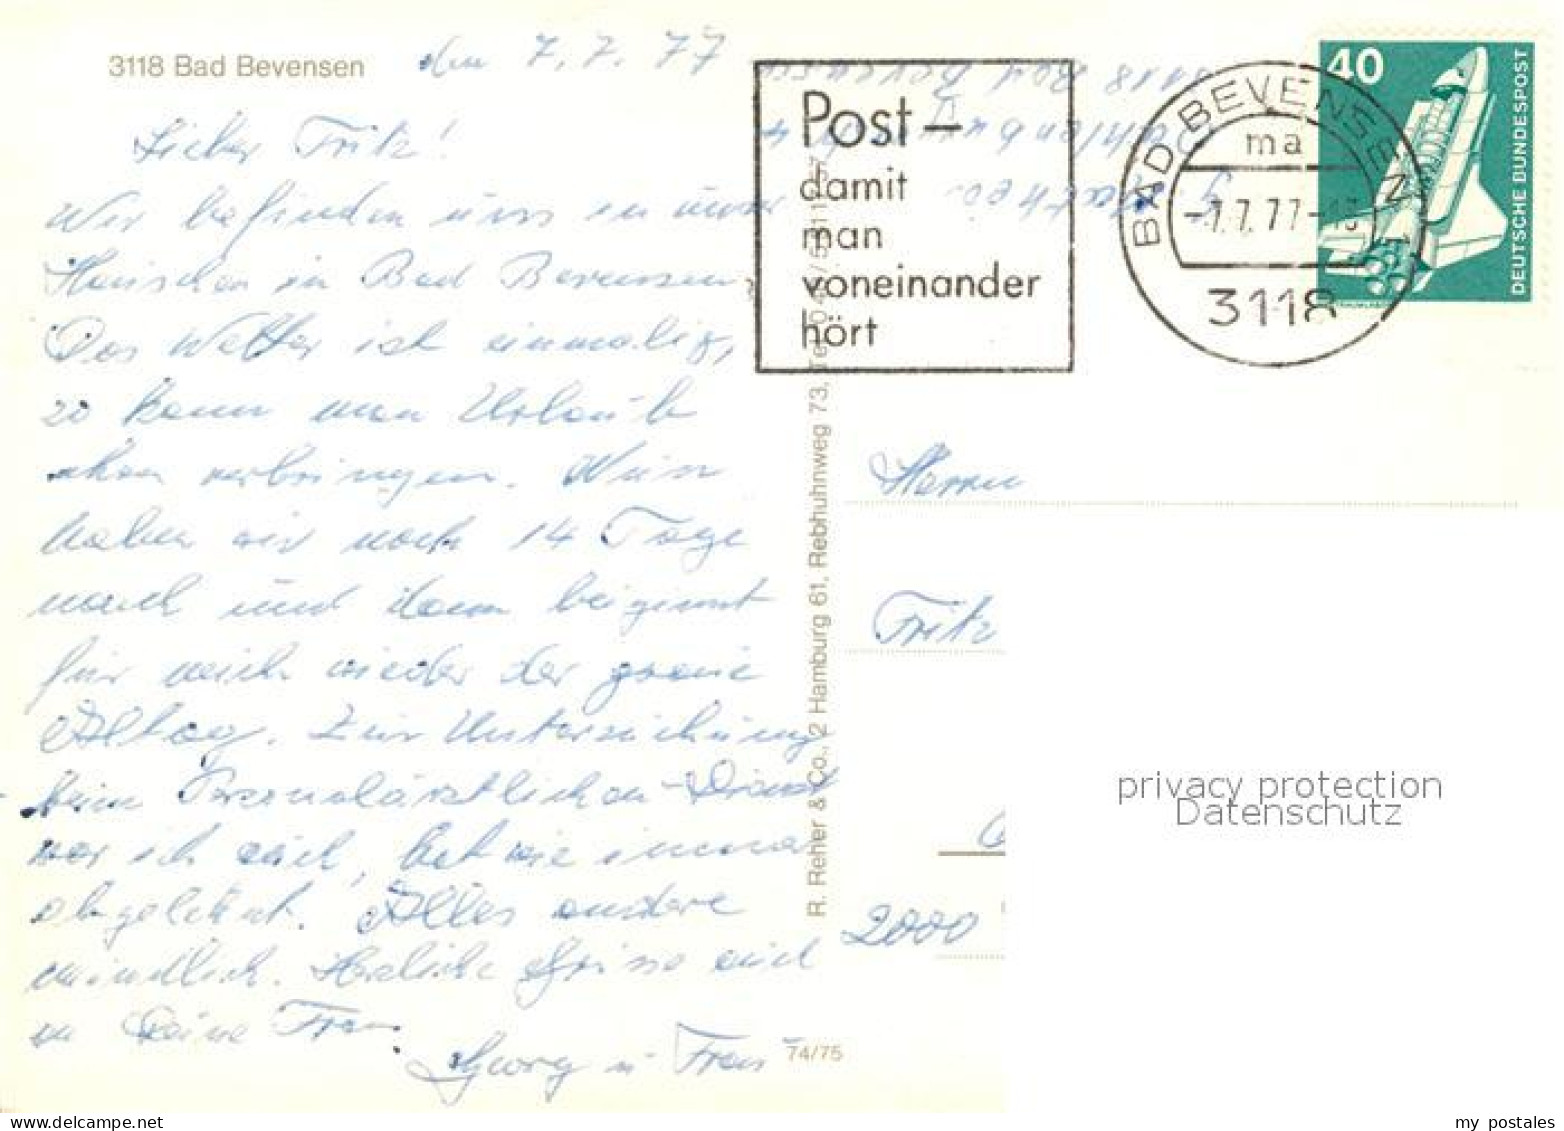 3118 Bad Bevensen
den 7.7.77
Lieber Fritz!
Wir befinden uns in unser
Häuschen in Bad Bevensen,
Das Wetter ist einmalig,
so kann man Urlaub
schon verbringen. Nun
haben wir noch 14 Tage
nach und dann beginnt
für mich wieder der graue
Alltag. Zur Untersuchung
beim Personalärztlichen-Dienst
war ich auch, hat wie immer
abgelehnt. Alles andere
mündlich. Herzliche Grüsse auch
an Deine Frau.
Georg u. Frau
74/75
R. Reher & Co., 2 Hamburg 61, Rebhuhnweg 73,
3118 Bad Bevensen
Post-
damit
man
voneinander
hört
BAD BEVENSEN 1
ma
-7.7.77-13
3118
40
DEUTSCHE BUNDESPOST
Herrn
Fritz
2000
privacy protection
Datenschutz
www.delcampe.net
my_postales